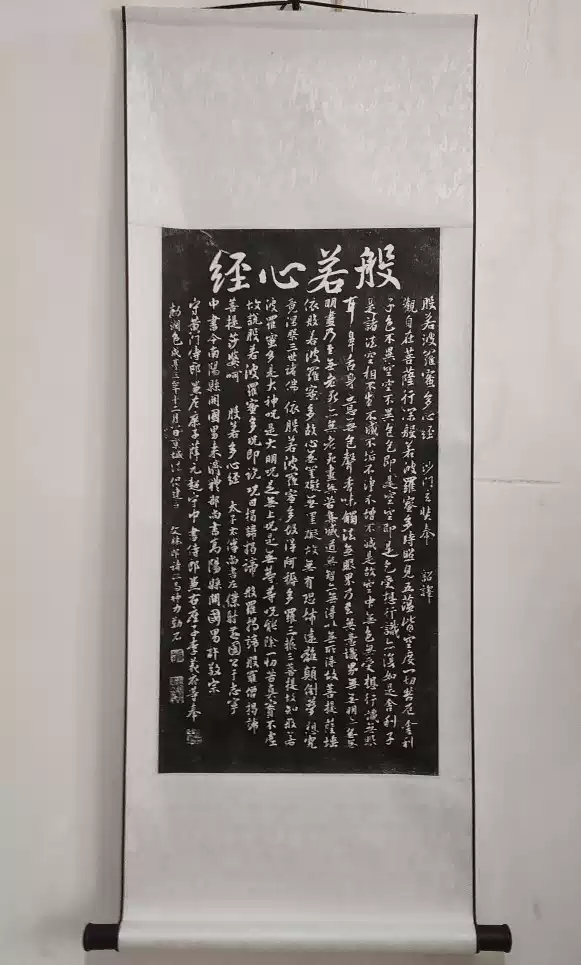 般若心經
般若波羅蜜多心經 沙門玄奘奉 詔譯
觀自在菩薩行深般若波羅蜜多時照見五蘊皆空度一切苦厄舍利
子色不異空空不異色色即是空空即是色受想行識亦復如是舍利子
是諸法空相不生不滅不垢不淨不增不減是故空中無色無受想行識無眼
耳鼻舌身意無色聲香味觸法無眼界乃至無意識界無無明亦無無
明盡乃至無老死亦無老死盡無苦集滅道無智亦無得以無所得故菩提薩埵
依般若波羅蜜多故心無罣礙無罣礙故無有恐怖遠離顛倒夢想究
竟涅槃三世諸佛依般若波羅蜜多故得阿耨多羅三藐三菩提故知般若
波羅蜜多是大神咒是大明咒是無上咒是無等等咒能除一切苦真實不虛
故說般若波羅蜜多咒即說咒曰揭諦揭諦 般羅揭諦 般羅僧揭諦
菩提莎婆呵 般若多心經 太子太傅尚書左僕射燕國公于志寧
中書令南陽縣開國男來濟 禮部尚書高陽縣開國男許敬宗
守黃門侍郎兼左庶子薛元超 守中書侍郎兼右庶子李義府等奉
敕潤色 咸亨三年十二月八日京城法侶建立 文林郎諸神力勒石